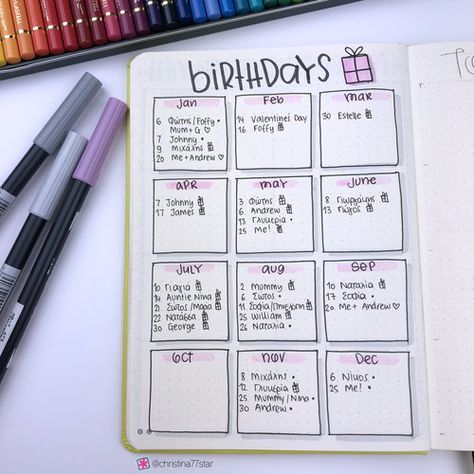 BIRTHDAYS
Jan
6 Φώτης/Foffy•
Mum+G ♡
7 Johnny•
9 Μιχάλης
20 Me+Andrew♡
Feb
14 Valentines Day
16 Foffy
Mar
30 Estelle
APR
7 Johnny
17 James
may
3 Φώτης
6 Andrew
13 Γλυκερία•
25 Me!
June
8 Γιωργάκης
13 Γιώργος
JULY
10 Γιαγιά
14 Auntie Nina
21 Σώτος/Μάρα
22 Νατάσσα
30 George
aug
2 Mummy
6 Σώτος•
11 Σοφία/
25 William
26 Ναταλία•
Sep
10 Ναταλία
17 Σοφία•
20 Me+Andrew♡
Oct
Nov
8 Μιχάλης•
12 Γλυκερία
25 Mummy/Nina•
30 Andrew•
Dec
6 Νίκος•
25 Me!•
@christina77star